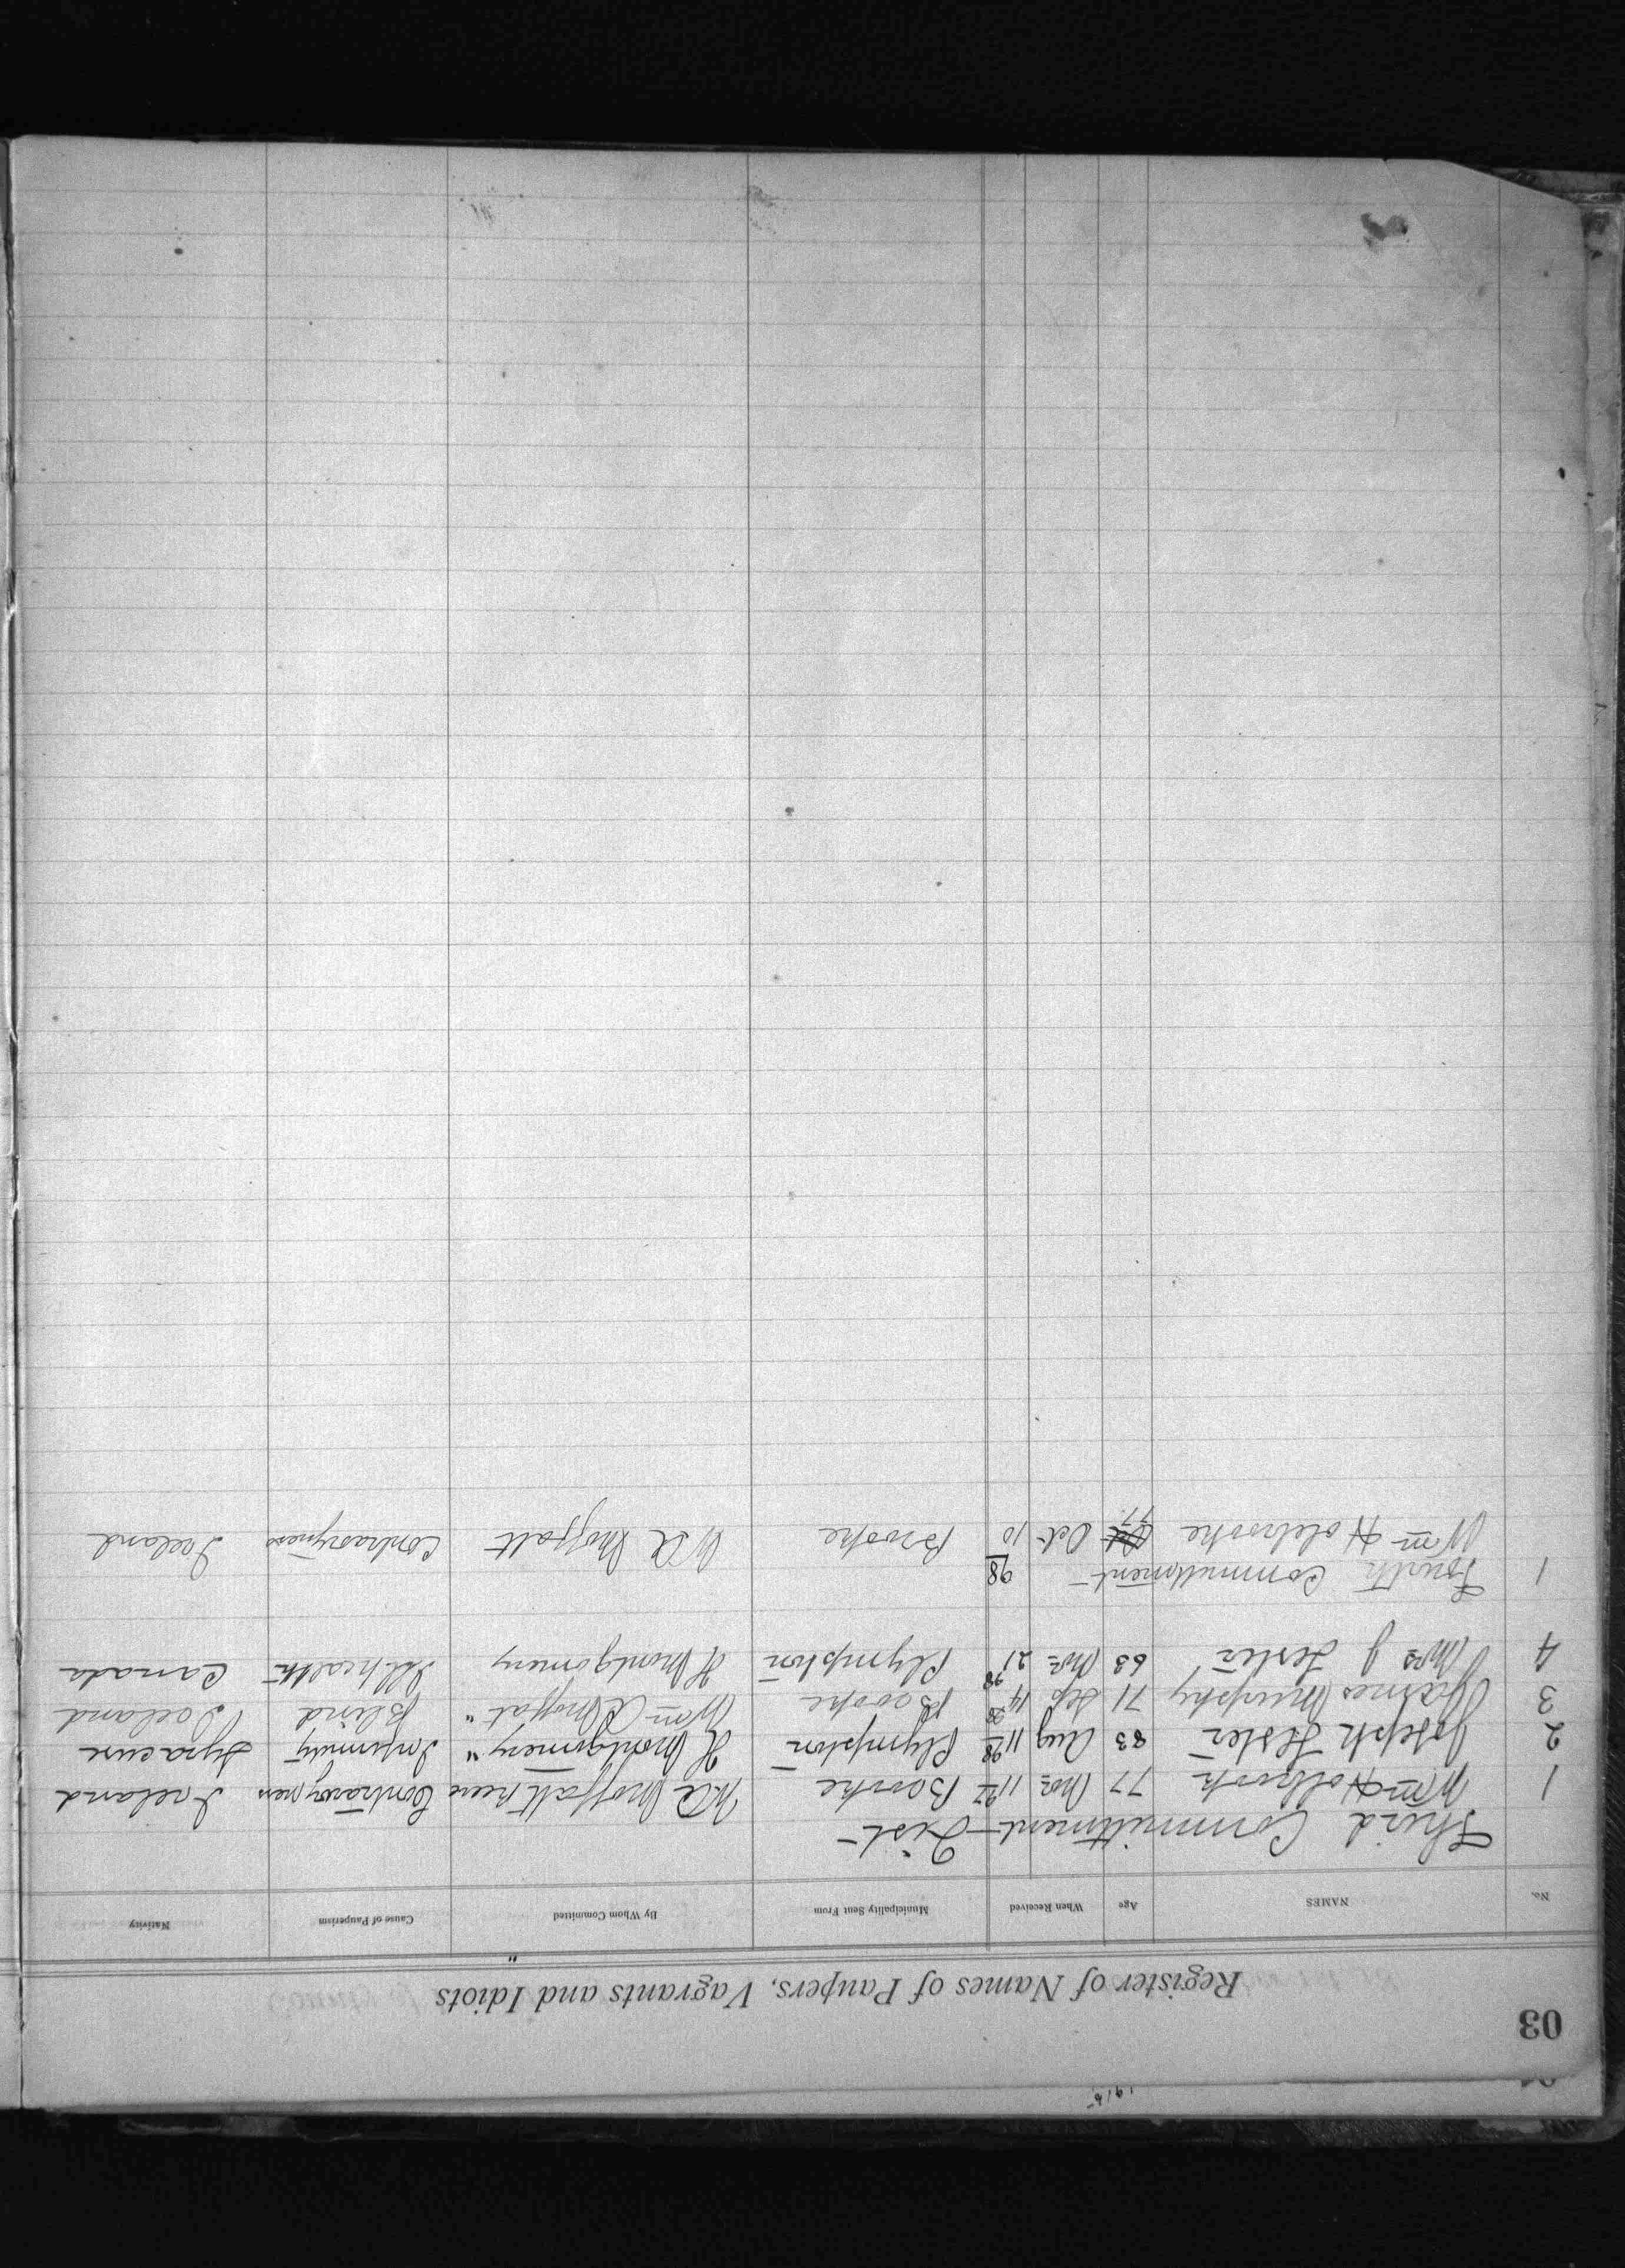 03
Register of Names of Paupers, Vagrants and Idiots
No. NAMES Age When Received Municipality Sent From By Whom Committed Cause of Pauperism Nativity
Third Committment List
1 Wm Holbrook 77 11 Brooke W A Moffatt Reeve Contraryness Ireland
2 Joseph Lester 83 Aug 11 98 Plympton H Montgomery " Infirmity Syracuse
3 James Murphy 71 Sep 14 98 Brooke Wm A Moffat " Blind Ireland
4 Mrs J Lester 63 21 98 Plympton H Montgomery Ill health Canada
Fourth Committment 98
1 Wm Holebrooke 77 Oct 10 Brooke W A Moffatt Contraryness Ireland